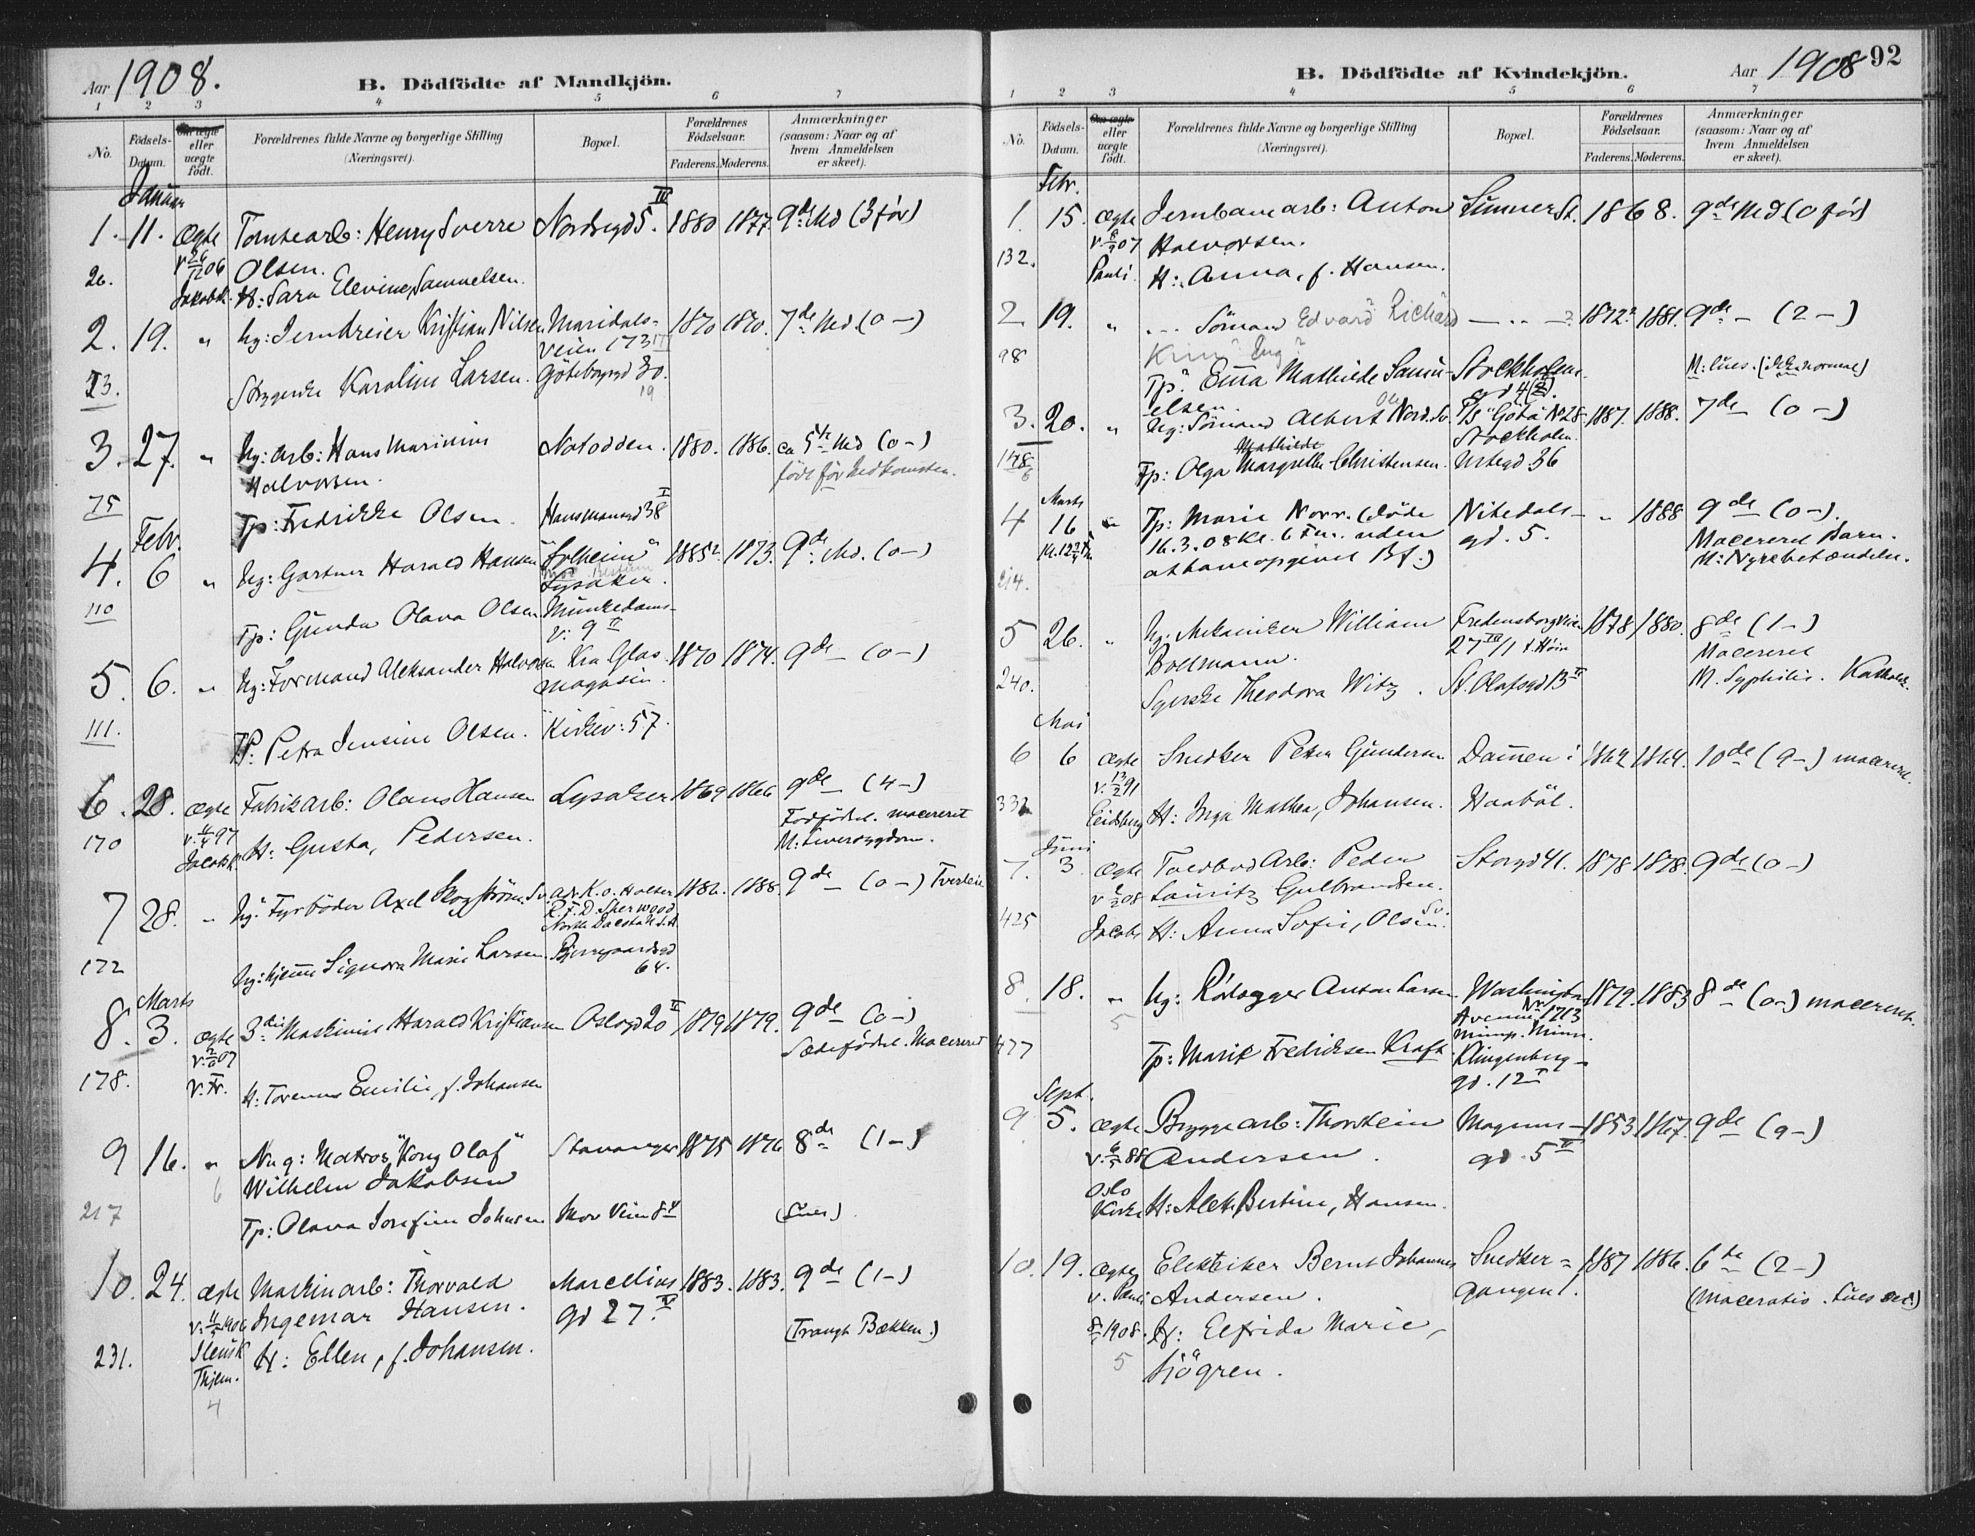 Aar 1908.
B. Dödfödte af Mandkjön.
1 2 3 4 5 6 7
No.
Födsels-
Datum.
Om ægte
eller
uægte
født.
Forældrenes fulde Navne og borgerlige Stilling
(Næringsvei).
Bopæl.
Forældrenes
Födselsaar.
Faderens. Moderens.
Anmærkninger
(saasom: Naar og af
hvem Anmeldelsen
er skeet).
Januar
1. 11. Ægte Henry Sverre Nordregd 5 III 1880 1877 9de Md (3 för)
v. 26/12 06 Olsen.
26. Jakob k. H: Sara Elevine, Samuelsen.
2. 19. " Ug: Jerndreier Kristian Nilsen Maridals- 1870 1870. 7de Md (0 -)
veien 173
23. Strygerske Karoline Larsen. Götebggd 30.
19
3. 27. " Ug: Arb: Hans Marinius Notodden. 1880. 1886. ca 5te Md (0 -)
Halvorsen. født før Nedkomsten.
75 Tp: Fredrikke Olsen. Hausmannsgd 38 I
Febr.
4. 6 " Ug: Gartner Harald Hansen "Solheim" 1885? 1873. 9de Md. (0 -)
Lysaker.
110 Tp: Gunda Olava Olsen Munkedams-
v: 9 II
5. 6. " Ug: Formand Aleksander Halvorsen Kra Glas- 1870 1874. 9de - (0 -)
magasin.
111. Tp: Petra Jensine Olsen. Kirkev: 57.
6. 28. Ægte Fabrikarb: Olaus Hansen Lysaker 1869 1866 9de - (4 -)
v. 4/4 97 Fodfödsel. macereret
170 Jacobsk. H: Gusta, Pedersen. M: Leversygdom.
7 28. " Ug: Fyrböder Axel Skogström. Sv. adr. K. O. Holter 1886. 1888. 9de - (0 -) Tverleie
R.F.D. Sherwood
North Dacota U.S.A.
172 Ug: hjemme Signora Marie Larsen. Bjerregaardsgd
64.
Marts
8. 3. Ægte 3die Maskinist Harald Kristiansen Oslogd 20 II 1879 1879. 9de - (0 -)
Sædefödsel. Macereret
178. v. Fr. H: Emilie, f. Johansen
9 16. " Matros "Kong Olaf" Stavanger 1875 1876 8de - (1 -)
6 Wilhelm Jakobsen
217 Tp: Olava Josefine Johnsen Mor Veien 8 (Lues)
10. 24. Ægte Maskinarb: Thorvald Marcellius 1883. 1883. 9de - (1 -)
Ingemar Hansen. gd 27 IV
(Trangt Bækken.)
231. H: Ellen, f. Johansen.
4
B. Dödfödte af Kvindekjön.
Aar 1908 92
1 2 3 4 5 6 7
No.
Födsels-
Datum.
Om ægte
eller
uægte
född.
Forældrenes fulde Navne og borgerlige Stilling
(Næringsvei).
Bopæl.
Forældrenes
Födselsaar.
Faderens. Moderens.
Anmærkninger
(saasom: Naar og af
hvem Anmeldelsen
er skeet).
Febr.
1. 15. Ægte Jernbanearb: Anton Sunner St. 1868. 9de Md (0 för)
Halvorsen.
132. Pauli. H: Anna, f. Hansen.
2 19. " Sömand Edvard Richard - " - ? 1872? 1881. 9de - (2 -)
98 M: Lues. (ikke normal)
Tp: Emma Mathilde Samu- Stockholms-
elsen. gd 4
3. 20. " Ug: Sömand Albert Nord. Sv. S/S "Göta" No 28 1887. 1888. 7de - (0 -)
Stockholm.
Mathilde
Tp: Olga Margrethe Christensen. Urtegd 36
Marts
4 16 Tp: Marie Norr. (döde Nitedals- " 1888 9de - (0 -).
16.3.08 Kl. 6 Fm. uden gd. 5. Macereret Barn.
at have opgivet Bf.) M: Nyrebetændelse.
214.
5 26. " Ug: Mekaniker William Fredensborgveien 1878 1880. 8de (1 -)
Bollmann. 27 Macereret
240. Syerske Theodora Witz. St. Olafsgd 13 II M. Syphilis. Katholik.
Mai
6 6 Ægte Snedker Peter Gundersen Dammen i 1862 1864. 10de (9 -) macereret.
v. 13/2 91
332 Eidsberg H: Inga Mathea, Johansen. Haaböl.
Juni
7. 3 Ægte Toldbod Arb: Peder Storgd 41. 1878 1878. 9de (0 -)
Lauritz Gulbrandsen.
425 Jacobs H: Anna Sofie, Olsen. Sv.
8. 18. " Ug: Rörlægger Anton Larsen Washington 1879. 1883 8de - (0 -) macereret.
5 Avenue Nr 1713
Minnp. Minn.
477 Tp: Marie Fredriksen Kraft Klingenberg-
gd. 12 I
Sept.
9 5. Ægte Bryggearb: Thorstein Magnus- 1853 1867. 9de (9 -)
Andersen. gd. 5 II
Oslo
Kirke H: Alet Bertine, Hansen.
10. 19. Ægte Elektriker Bernt Johannes Snedker- 1887 1886. 6te - (2 -)
v. Pauli Andersen. gangen 1. (Maceratio. Lues ant.)
1908. H: Elfrida Marie,
5 Sjögren.